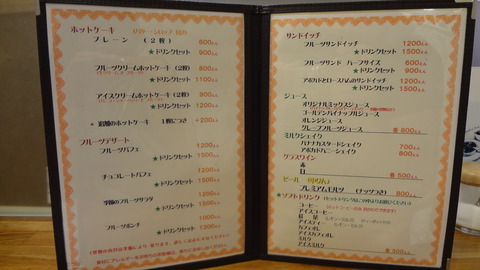 ホットケーキ
プレーン （2枚） 600
★ドリンクセット 900
フルーツクリームホットケーキ（2枚） 800
★ドリンクセット 1100
アイスクリームホットケーキ（2枚） 900
★ドリンクセット 1200
★ 追加のホットケーキ 1枚につき +200
フルーツデザート
フルーツパフェ 1200
★ドリンクセット 1500
チョコレートパフェ
★ドリンクセット 1500
季節のフルーツサラダ
★ドリンクセット
フルーツポンチ
★ドリンクセット 1300
サンドイッチ
フルーツサンドイッチ 1200
★ドリンクセット 1500
フルーツサンド ハーフサイズ 600
★ドリンクセット 900
アボカドとロースハムのサンドイッチ
★ドリンクセット 1200
ジュース
オリジナルミックスジュース
ゴールデンパイナップルジュース
オレンジジュース
グレープフルーツジュース 各 800
ミルクシェイク
バナナカスタードシェイク 700
アボカドハニーシェイク 800
グラスワイン
赤
白 各 500
ビール
プレミアムモルツ （ナッツつき） 800
★ソフトドリンク
コーヒー
アイスコーヒー
紅茶
アイスティー
カフェオレ
アイスカフェオレ
ミルク
アイスミルク 各 500